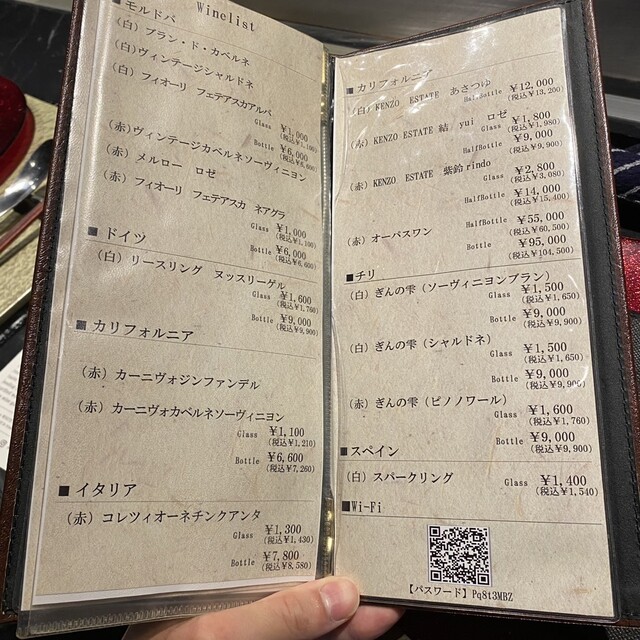 Winelist
■モルドバ
(白) ブラン・ド・カベルネ
(白)ヴィンテージシャルドネ
(白) フィオーリ フェテアスカアルバ
Glass ¥1,000
(税込¥1,100)
Bottle ¥6,000
(税込¥6,600)
(赤)ヴィンテージカベルネソーヴィニヨン
(赤) メルロー ロゼ
(赤) フィオーリ フェテアスカ ネアグラ
Glass ¥1,000
(税込¥1,100)
Bottle ¥6,000
(税込¥6,600)
■ドイツ
(白) リースリング ヌッスリーゲル
Glass ¥1,600
(税込¥1,760)
Bottle ¥9,000
(税込¥9,900)
■カリフォルニア
(赤) カーニヴォジンファンデル
(赤) カーニヴォカベルネソーヴィニヨン
Glass ¥1,100
(税込¥1,210)
Bottle ¥6,600
(税込¥7,260)
■イタリア
(赤) コレツィオーネチンクアンタ
Glass ¥1,300
(税込¥1,430)
Bottle ¥7,800
(税込¥8,580)
■カリフォルニア
(白) KENZO ESTATE あさつゆ
HalfBottle ¥12,000
(税込¥13,200)
(赤) KENZO ESTATE 結 yui ロゼ
Glass ¥1,800
(税込¥1,980)
HalfBottle ¥9,000
(税込¥9,900)
(赤) KENZO ESTATE 紫鈴 rindo
Glass ¥2,800
(税込¥3,080)
HalfBottle ¥14,000
(税込¥15,400)
(赤) オーパスワン
HalfBottle ¥55,000
(税込¥60,500)
Bottle ¥95,000
(税込¥104,500)
■チリ
(白) ぎんの雫 (ソーヴィニヨンブラン)
Glass ¥1,500
(税込¥1,650)
Bottle ¥9,000
(税込¥9,900)
(白) ぎんの雫 (シャルドネ)
Glass ¥1,500
(税込¥1,650)
Bottle ¥9,000
(税込¥9,900)
(赤) ぎんの雫 (ピノノワール)
Glass ¥1,600
(税込¥1,760)
Bottle ¥9,000
(税込¥9,900)
■スペイン
(白) スパークリング
Glass ¥1,400
(税込¥1,540)
■Wi-Fi
【パスワード】Pq8t3MBZ